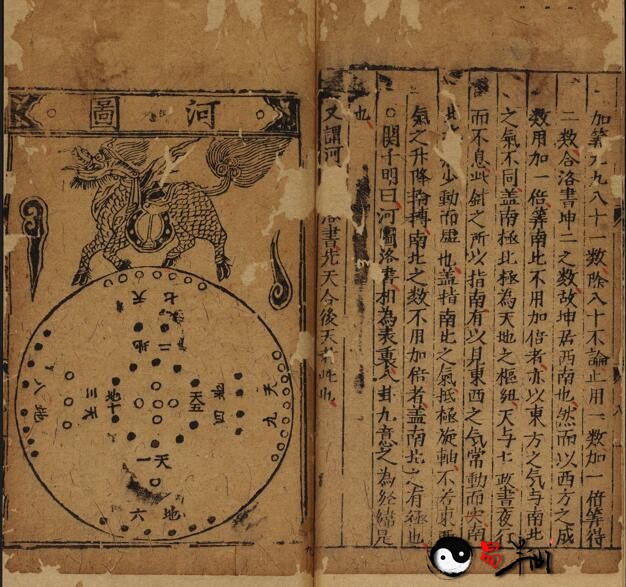 加筭九九八十一數除八十不論止用一數加一倍筭得
二數合洛書坤二之數故坤居西南也然而以西方之成
數用加一倍筭南北不用加倍者亦以東方之气与南北
之气不同盖南極北極為天地之樞紐天与七政晝夜行
而不息此針之所以指南有以見東西之气常動而 南
少動而虛也盖指南北之气抵極旋軸不若東
氣之升降 南北之數不用加倍者盖南北之有極也
○関子明曰河圖洛書相為表裏八卦九 之為經緯是
也
又謂河 書先天合後天
河圖
天七
地二
地八
天三
地十
天五
四
天九
天一
地六
易